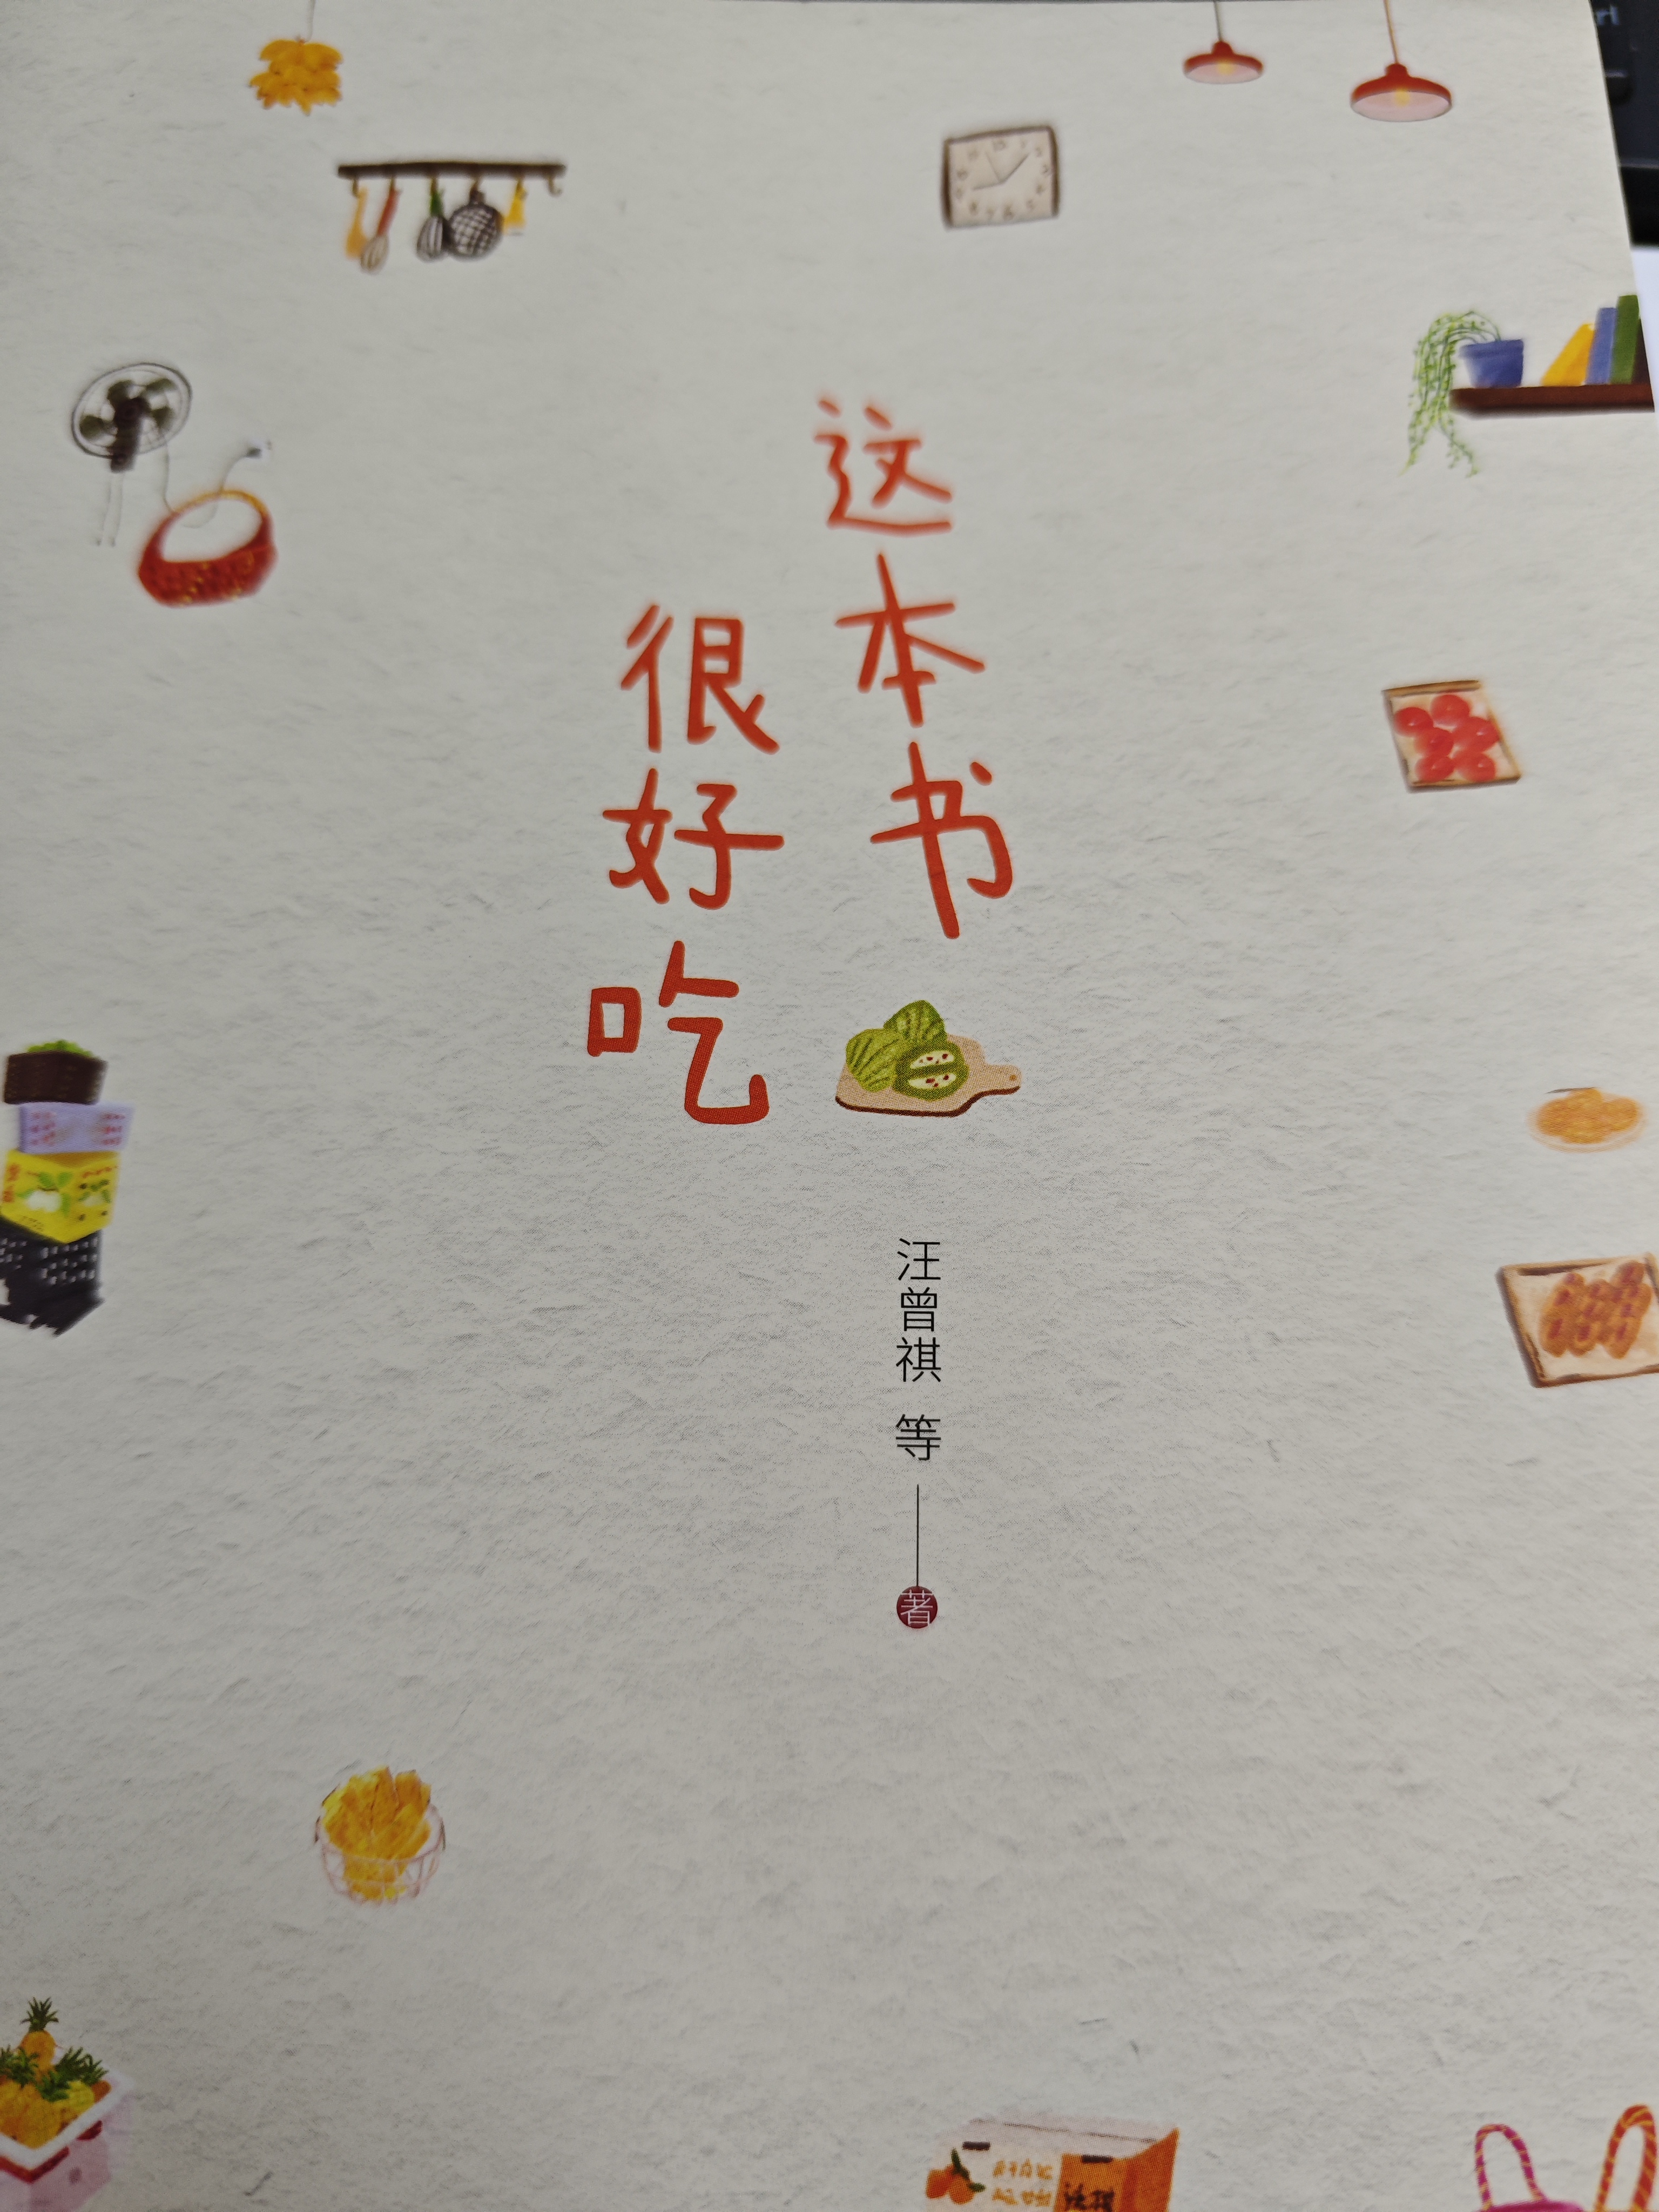 这本书
很好吃
汪曾祺 等
著